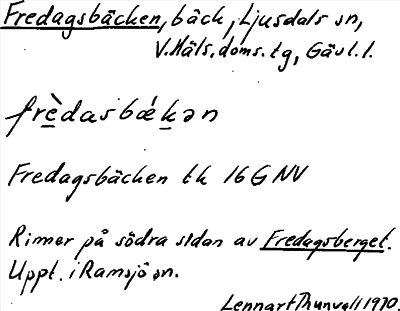 Fredagsbäcken, bäck, Ljusdals sn,
V. Häls. doms. tg, Gävl. l.
frè̱dasbǽḵən
Fredagsbäcken tk 16 G NV
Rinner på södra sidan av Fredagsberget.
Uppt. i Ramsjö sn.
Lennart Thunvall 1970.